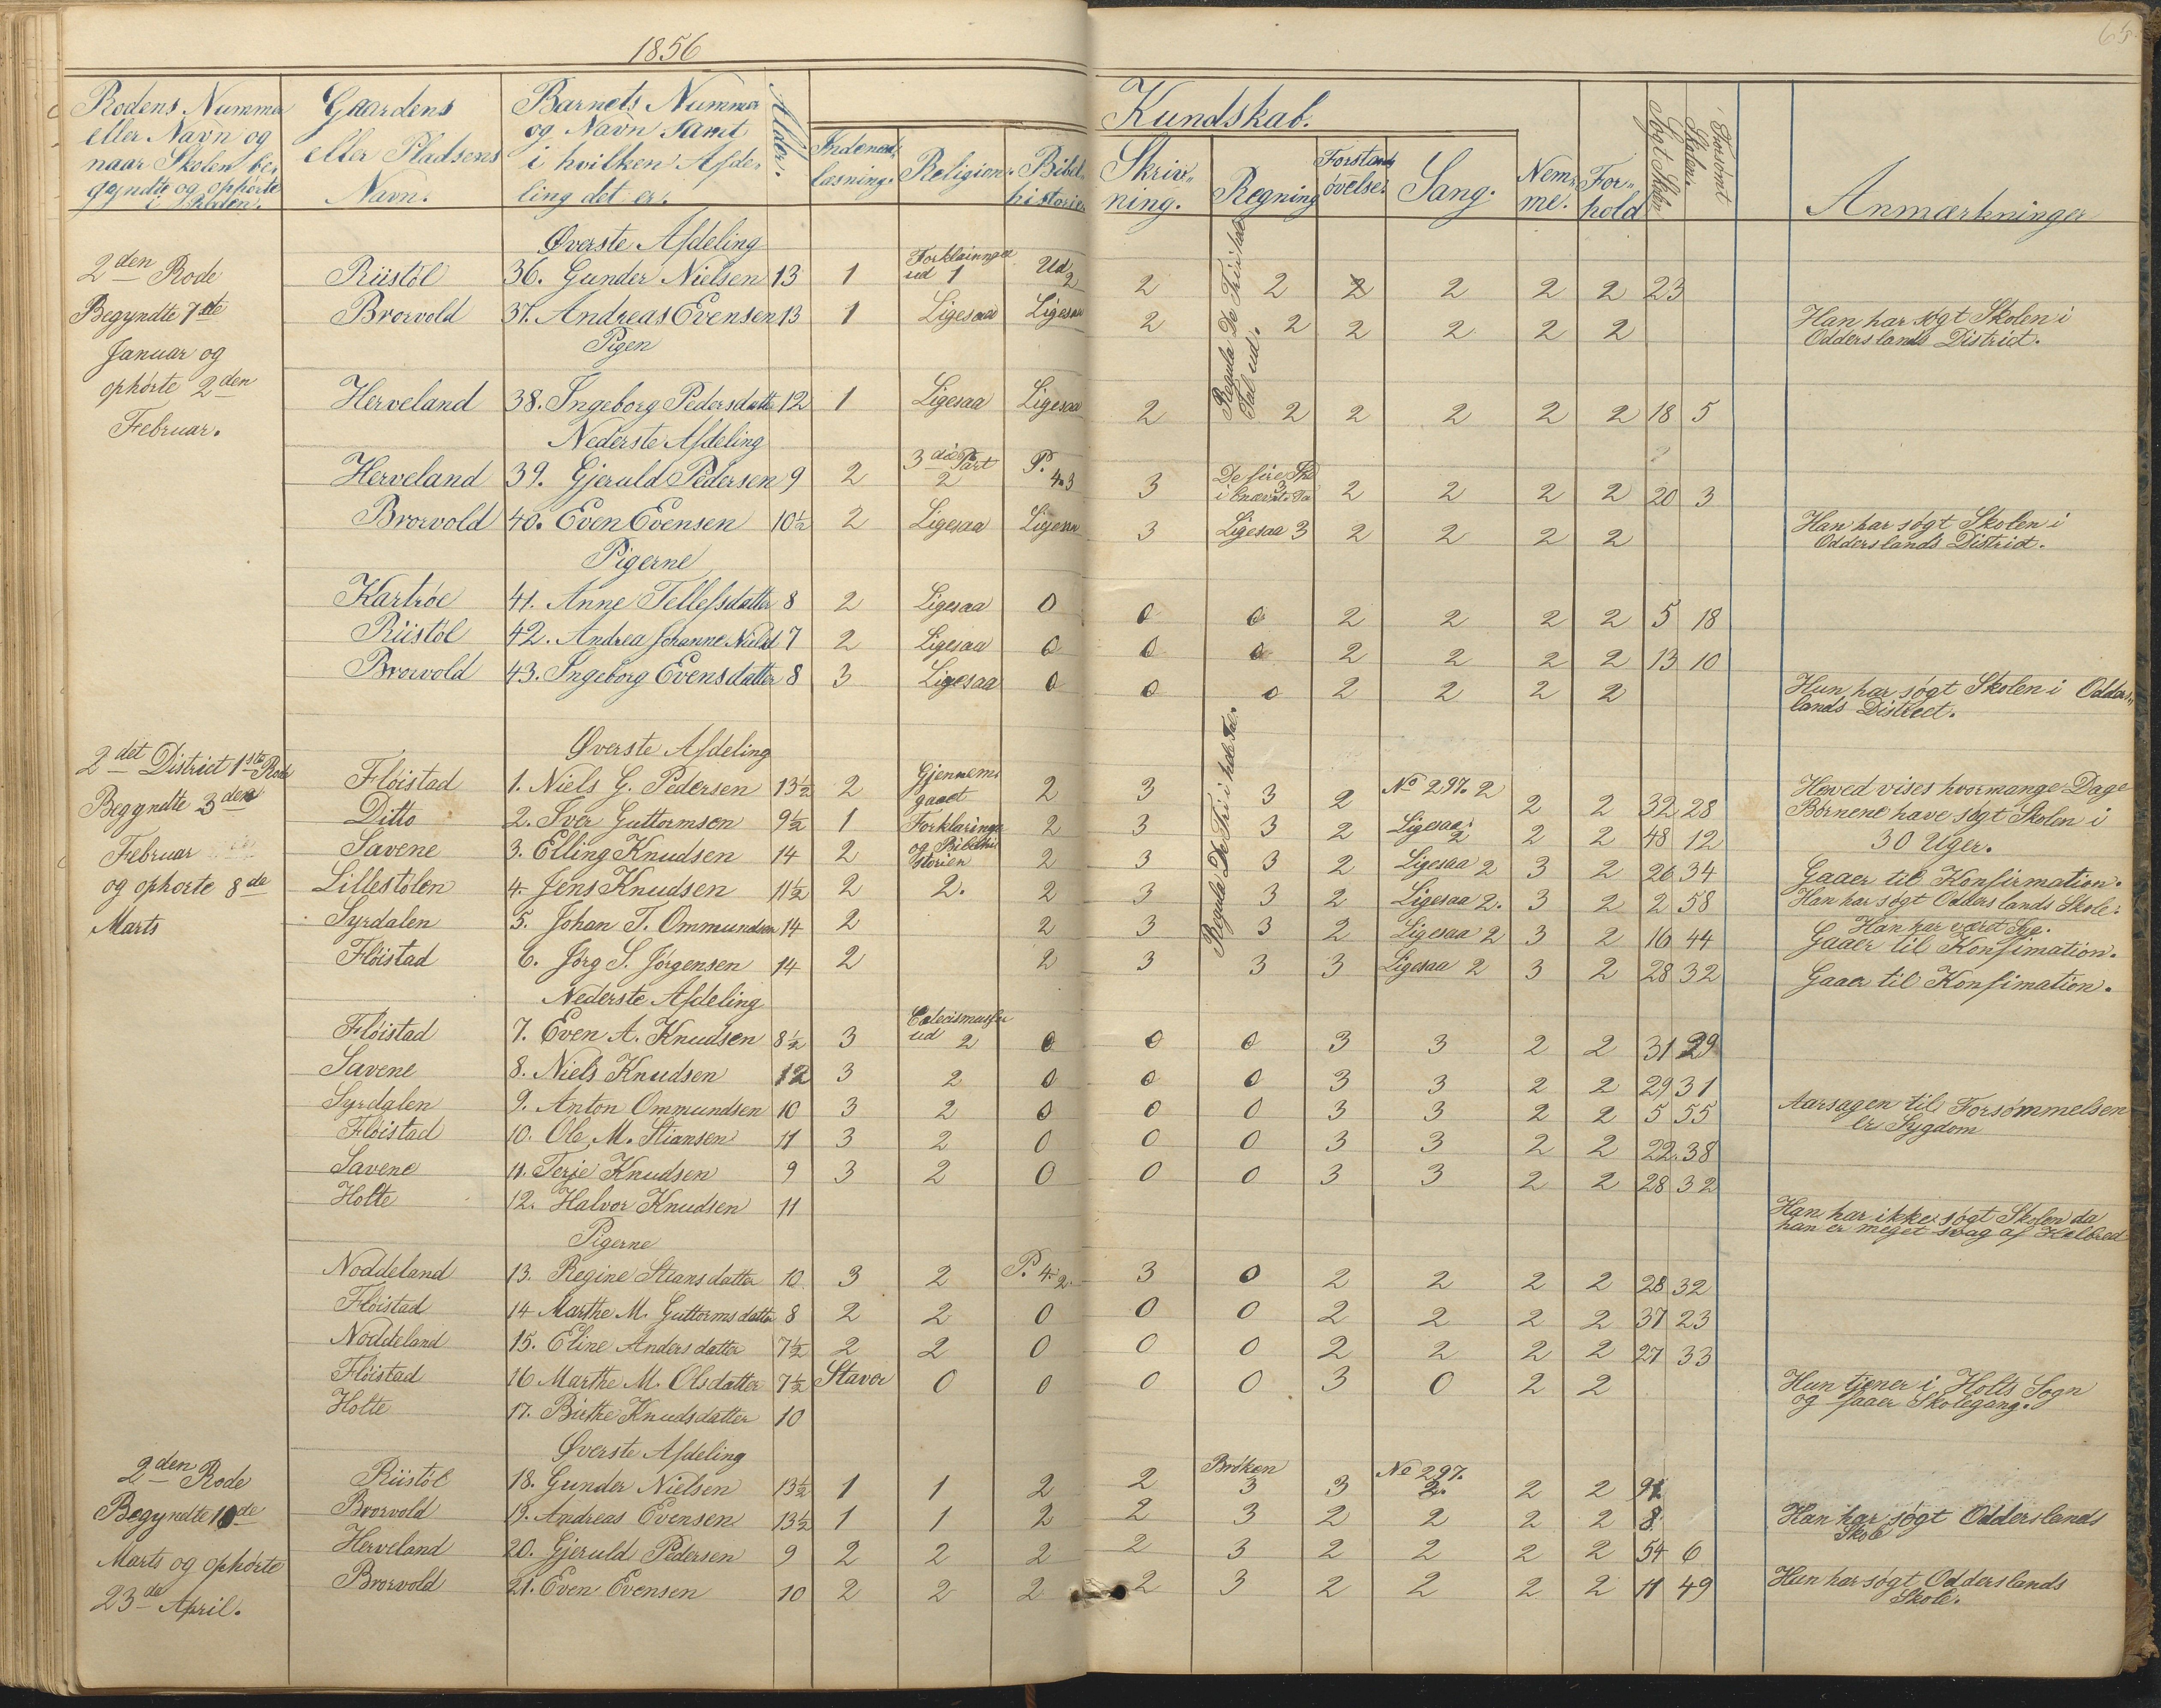 1856
65.
Rodens Nummer eller Navn og naar Skolen begyndte og ophörte i Roden.
Gaardens eller Pladsens Navn.
Barnets Nummer og Navn samt i hvilken Afdeling det er.
Alder.
Kundskab.
Indenadlæsning.
Religion.
Bibelhistorie
Skrivning.
Regning
Forstandsövelser
Sang.
Nemme.
Forhold
Søgt Skolen
Forsömt Skolen.
Anmærkninger
Øverste Afdeling
2den Rode Riistöl 36. Gunder Nielsen 13 1 Forklaringen ud 1 Ud 2 2 2 2 2 2 2 23
Regula De Tri i hele Tal ud.
Begyndte 7de Brovold 37. Andreas Evensen 13 1 Ligesaa Ligesaa 2 2 2 2 2 2 Han har sögt Skolen i
Odderslands District.
Januar og Pigen
ophörte 2den Herveland 38. Ingeborg Pedersdatter 12 1 Ligesaa Ligesaa 2 2 2 2 2 2 18 5
Februar. Nederste Afdeling
Herveland 39. Gjeruld Pedersen 9 2 3die Part 2 P. 4. 3 3 De fire Sp. i 3 2 2 2 2 20 3
Brovold 40. Even Evensen 10½ 2 Ligesaa Ligesaa 3 Ligesaa 3 2 2 2 2 Han har sögt Skolen i
Odderslands District.
Pigerne
Kartröe 41. Anne Tellefsdatter 8 2 Ligesaa 0 0 0 2 2 2 2 5 18
Riistöl 42. Andrea Johanne Nielsd 7 2 Ligesaa 0 0 0 2 2 2 2 13 10
Brovold 43. Ingeborg Evensdatter 8 3 Ligesaa 0 0 0 2 2 2 2 Hun har sögt Skolen i Odders-
lands District.
Øverste Afdeling
Regula De Tri i hele Tal.
2det District 1ste Rode Flöistad 1. Niels G. Pedersen 13½ 2 Gjennemgaaet 2 3 3 2 No 297. 2 2 2 32 28 Herved vises hvormange Dage
Begyndte 3den Ditto 2. Iver Guttormsen 9½ 1 Forklaringen 2 3 3 2 Ligesaa 2 2 2 48 12 Börnene have søgt Skolen i
Februar Savene 3. Elling Knudsen 14 2 og Bibelhistorien 2 3 3 2 Ligesaa 2 3 2 26 34 30 Uger.
Gaaer til Konfirmation.
og ophorte 8de Lillestölen 4. Jens Knudsen 11½ 2 2. 2 3 3 2 Ligesaa 2. 3 2 2 58 Han har søgt Odderslands Skole.
Marts Syrdalen 5. Johan T. Ommundsen 14 2 2 3 3 2 Ligesaa 2 3 2 16 44 Han har været Syg.
Gaaer til Konfimation.
Flöistad 6. Jörg S. Jörgensen 14 2 2 3 3 3 Ligesaa 2 3 2 28 32 Gaaer til Konfimation.
Nederste Afdeling
Flöistad 7. Even A. Knudsen 8½ 3 Catecismussen ud 2 0 0 0 3 3 2 2 31 29
Savene 8. Niels Knudsen 12 3 2 0 0 0 3 3 2 2 29 31
Syrdalen 9. Anton Ommundsen 10 3 2 0 0 0 3 3 2 2 5 55 Aarsagen til Forsömmelsen
er Sygdom
Flöistad 10. Ole M. Stiansen 11 3 2 0 0 0 3 3 2 2 22 38
Savene 11. Terje Knudsen 9 3 2 0 0 0 3 3 2 2 28 32
Holte 12. Halvor Knudsen 11 Han har ikke sögt Skolen da
han er meget svag af Helbred
Pigerne
Noddeland 13. Regine Stiansdatter 10 3 2 P. 4. 2. 3 0 2 2 2 2 28 32
Flöistad 14 Marthe M. Guttormsdatter 8 2 2 0 0 0 2 2 2 2 37 23
Noddeland 15. Eline Andersdatter 7½ 2 2 0 0 0 2 2 2 2 27 33
Flöistad 16 Marthe M. Olsdatter 7½ Staver 0 0 0 0 3 0 2 2 Hun tjener i Holts Sogn
og faaer Skolegang.
Holte 17. Birthe Knudsdatter 10
Øverste Afdeling
2den Rode Riistöl 18. Gunder Nielsen 13½ 1 1 2 2 Bröken 3 3 No 297. 2. 2 2 91
Begyndte 10de Brovold 19. Andreas Evensen 13½ 1 1 2 2 3 2 2 2 2 8 Han har sögt Odderslands
Skole
Marts og ophörte Herveland 20. Gjeruld Pedersen 9 2 2 2 2 3 2 2 2 2 54 6
23de April. Brovold 21. Even Evensen 10 2 2 2 2 3 2 2 2 2 11 49 Hun har søgt Odderslands
Skole.